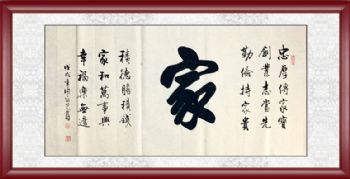 忠厚傳家寶
創業志當先
勤儉持家貴
家
積德勝積錢
家和萬事興
幸福樂無邊